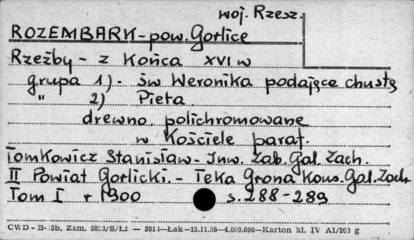 woj. Rzesz.
ROZEMBARK - pow. Gorlice
Rzeźby - z Końca XVI w
grupa 1) - św Weronika podające chustę
" 2) Pieta
drewno polichromowane
w Kościele paraf.
Tomkowicz Stanisław - Inw. Zab. Gal. Zach.
II Powiat Gorlicki. - Teka Grona Kons. Gal. Zach.
Tom I r 1900 s. 288-289
CWD - B-15b. Zam. - Łak - 4.000.000 - Karton kl. IV A1/200 g